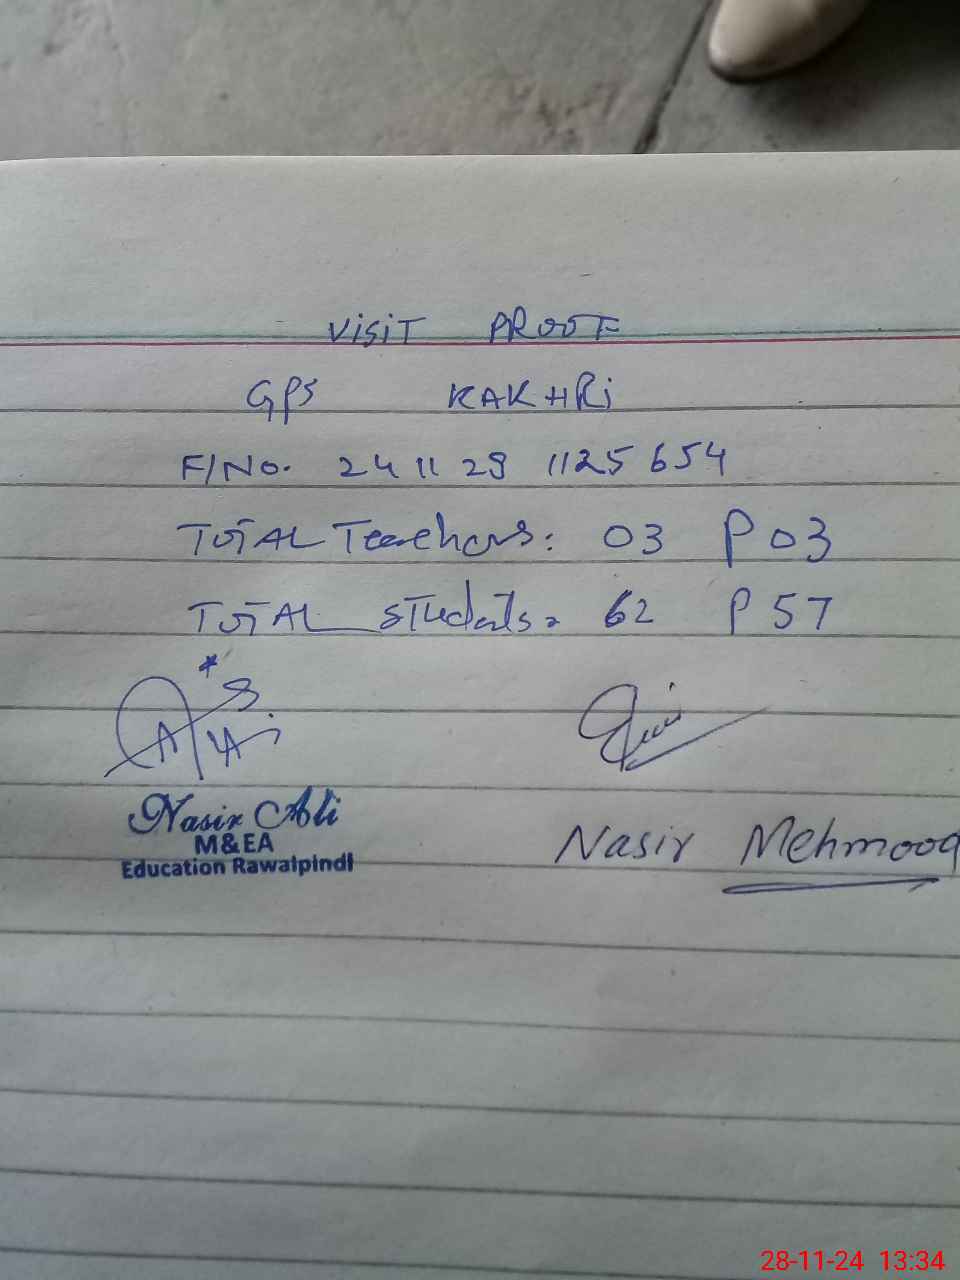 VISIT PROOF
GPS KAKHRi
F/No. 24 11 28 1125654
TOTAL Teachers: 03 P 03
TOTAL students: 62 P 57
Nasir Ali
M&EA
Education Rawalpindi
Nasir Mehmood
28-11-24 13:34